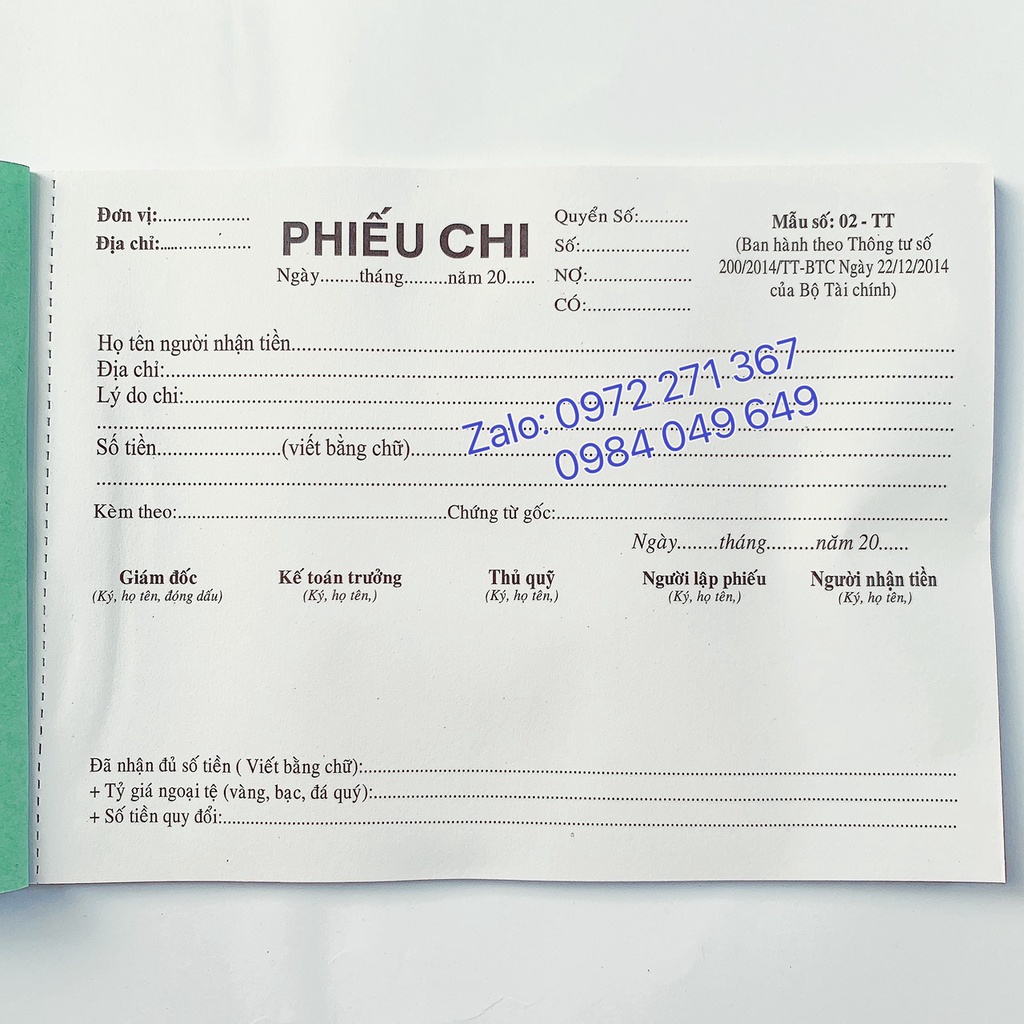 Đơn vị:...................
Địa chỉ:...................
PHIẾU CHI
Ngày........tháng.........năm 20......
Quyển Số:..........
Số:......................
NỢ:.....................
CÓ:.....................
Mẫu số: 02 - TT
(Ban hành theo Thông tư số
200/2014/TT-BTC Ngày 22/12/2014
của Bộ Tài chính)
Họ tên người nhận tiền..........................................................
Địa chỉ:..........................................................
Lý do chi:..........................................................
Zalo: 0972 271 367
0984 049 649
Số tiền.......................(viết bằng chữ)..........................................................
Kèm theo:..................................................Chứng từ gốc:..................................................
Ngày........tháng.........năm 20......
Giám đốc Kế toán trưởng Thủ quỹ Người lập phiếu Người nhận tiền
(Ký, họ tên, đóng dấu) (Ký, họ tên,) (Ký, họ tên,) (Ký, họ tên,) (Ký, họ tên,)
Đã nhận đủ số tiền ( Viết bằng chữ):..........................................................
+ Tỷ giá ngoại tệ (vàng, bạc, đá quý):..........................................................
+ Số tiền quy đổi:..........................................................